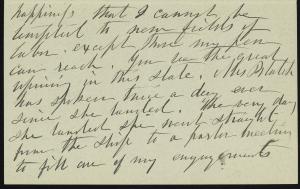 happenings that I cannot be
tempted to new fields of
labor, except those my pen
can reach. You see the great
opening in this state. Mrs Blatch
has spoken twice a day ever
since she landed. The very day
she landed she went straight
from the ship to a parlor meeting
to fill one of my engagements